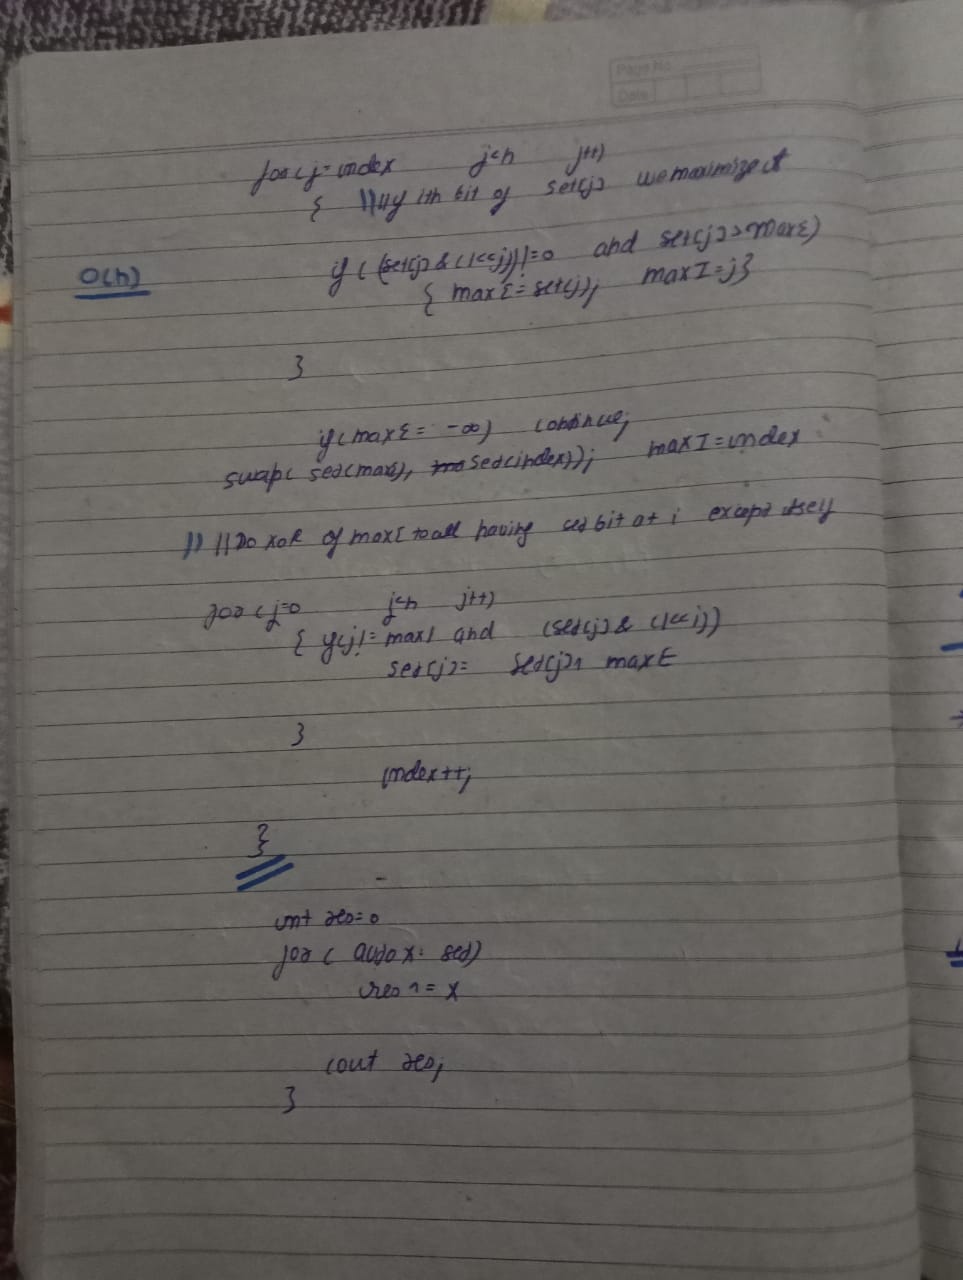 Page No.
Date
for(j=index j<n j++)
{ //if ith bit of set[j] we maximize it
O(n)
if ( (set[j] & (1<<j))!=0 and set[j]>maxE)
{ maxE=set[j]; maxI=j}
}
if(maxE= -∞) continue;
swap( set(maxI), set(index)); maxI=index
// Do XOR of maxE to all having set bit at i except itself
for(j=0 j<n j++)
{ if(j!=maxI and (set[j] & (1<<i))
set[j]= set[j]^ maxE
}
index++;
}
int res=0
for( auto x: set)
res ^= x
cout res;
}